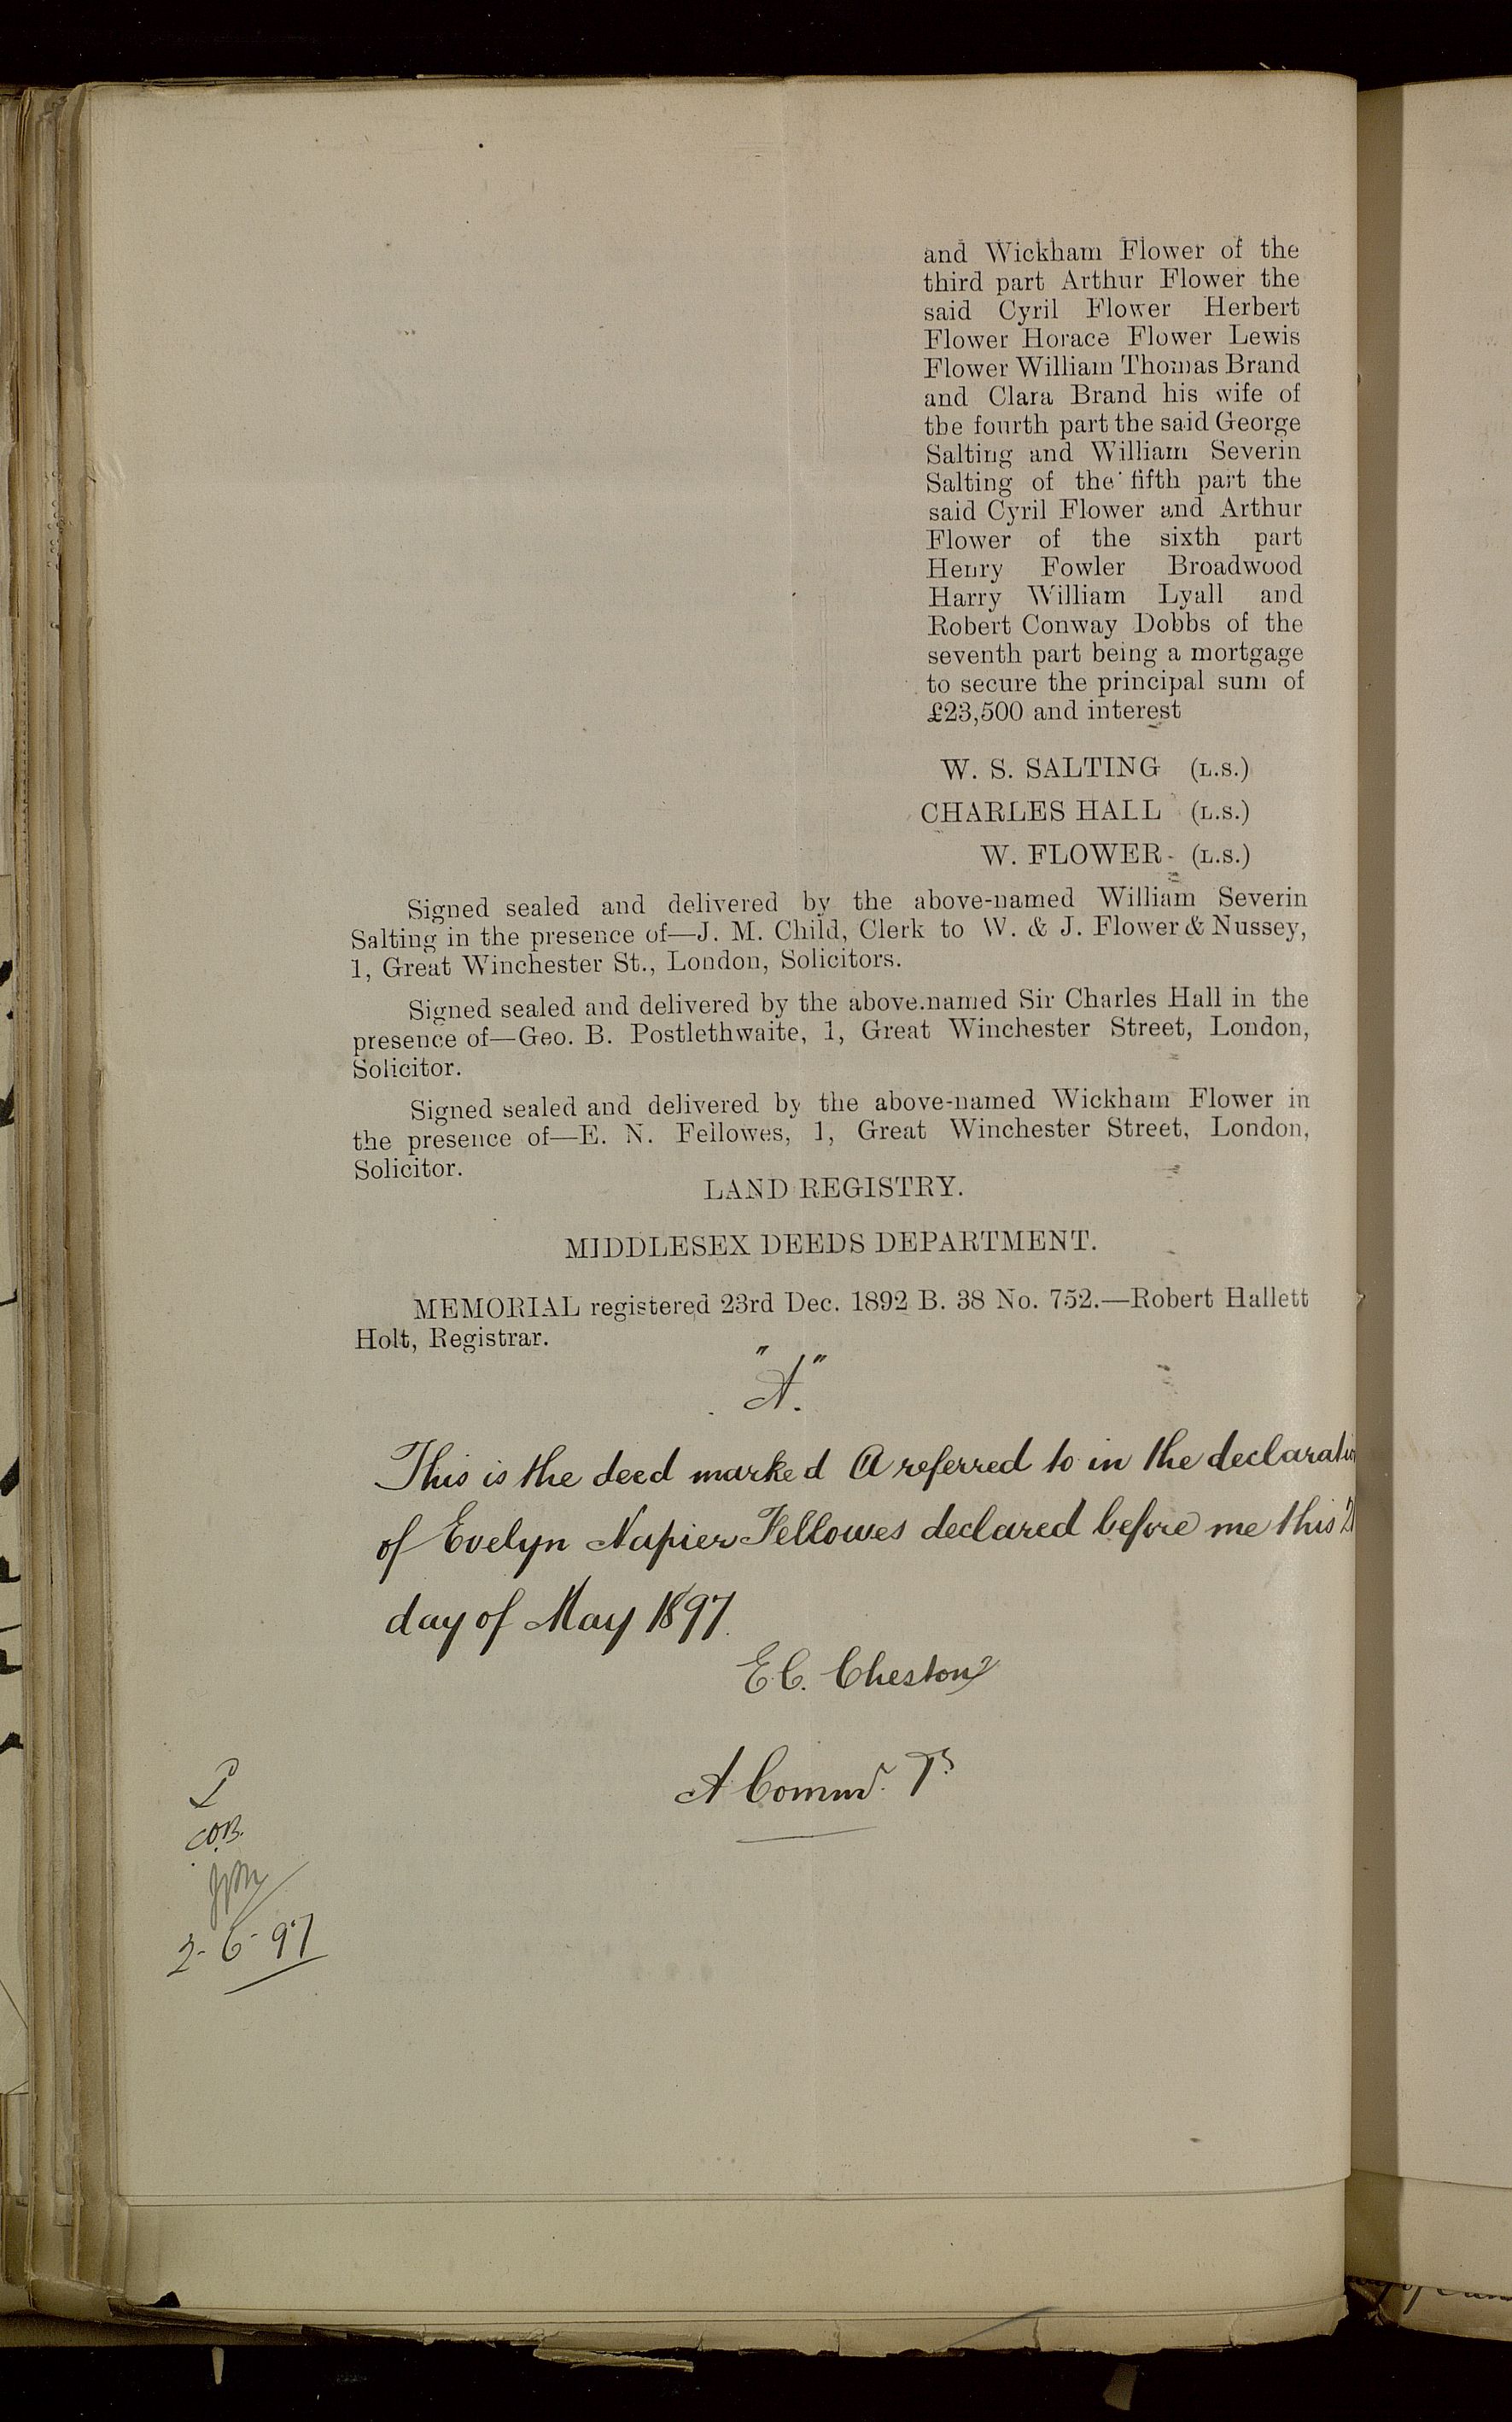 and Wickham Flower of the
third part Arthur Flower the
said Cyril Flower Herbert
Flower Horace Flower Lewis
Flower William Thomas Brand
and Clara Brand his wife of
the fourth part the said George
Salting and William Severin
Salting of the fifth part the
said Cyril Flower and Arthur
Flower of the sixth part
Henry Fowler Broadwood
Harry William Lyall and
Robert Conway Dobbs of the
seventh part being a mortgage
to secure the principal sum of
£23,500 and interest
W. S. SALTING (L.S.)
CHARLES HALL (L.S.)
W. FLOWER (L.S.)
Signed sealed and delivered by the above-named William Severin
Salting in the presence of—J. M. Child, Clerk to W. & J. Flower & Nussey,
1, Great Winchester St., London, Solicitors.
Signed sealed and delivered by the above.named Sir Charles Hall in the
presence of—Geo. B. Postlethwaite, 1, Great Winchester Street, London,
Solicitor.
Signed sealed and delivered by the above-named Wickham Flower in
the presence of—E. N. Fellowes, 1, Great Winchester Street, London,
Solicitor.
LAND REGISTRY.
MIDDLESEX DEEDS DEPARTMENT.
MEMORIAL registered 23rd Dec. 1892 B. 38 No. 752.—Robert Hallett
Holt, Registrar.
"A."
This is the deed marked A referred to in the declaratio
of Evelyn Napier Fellowes declared before me this
day of May 1897.
E C. Cheston
A Commr.
2-6-97